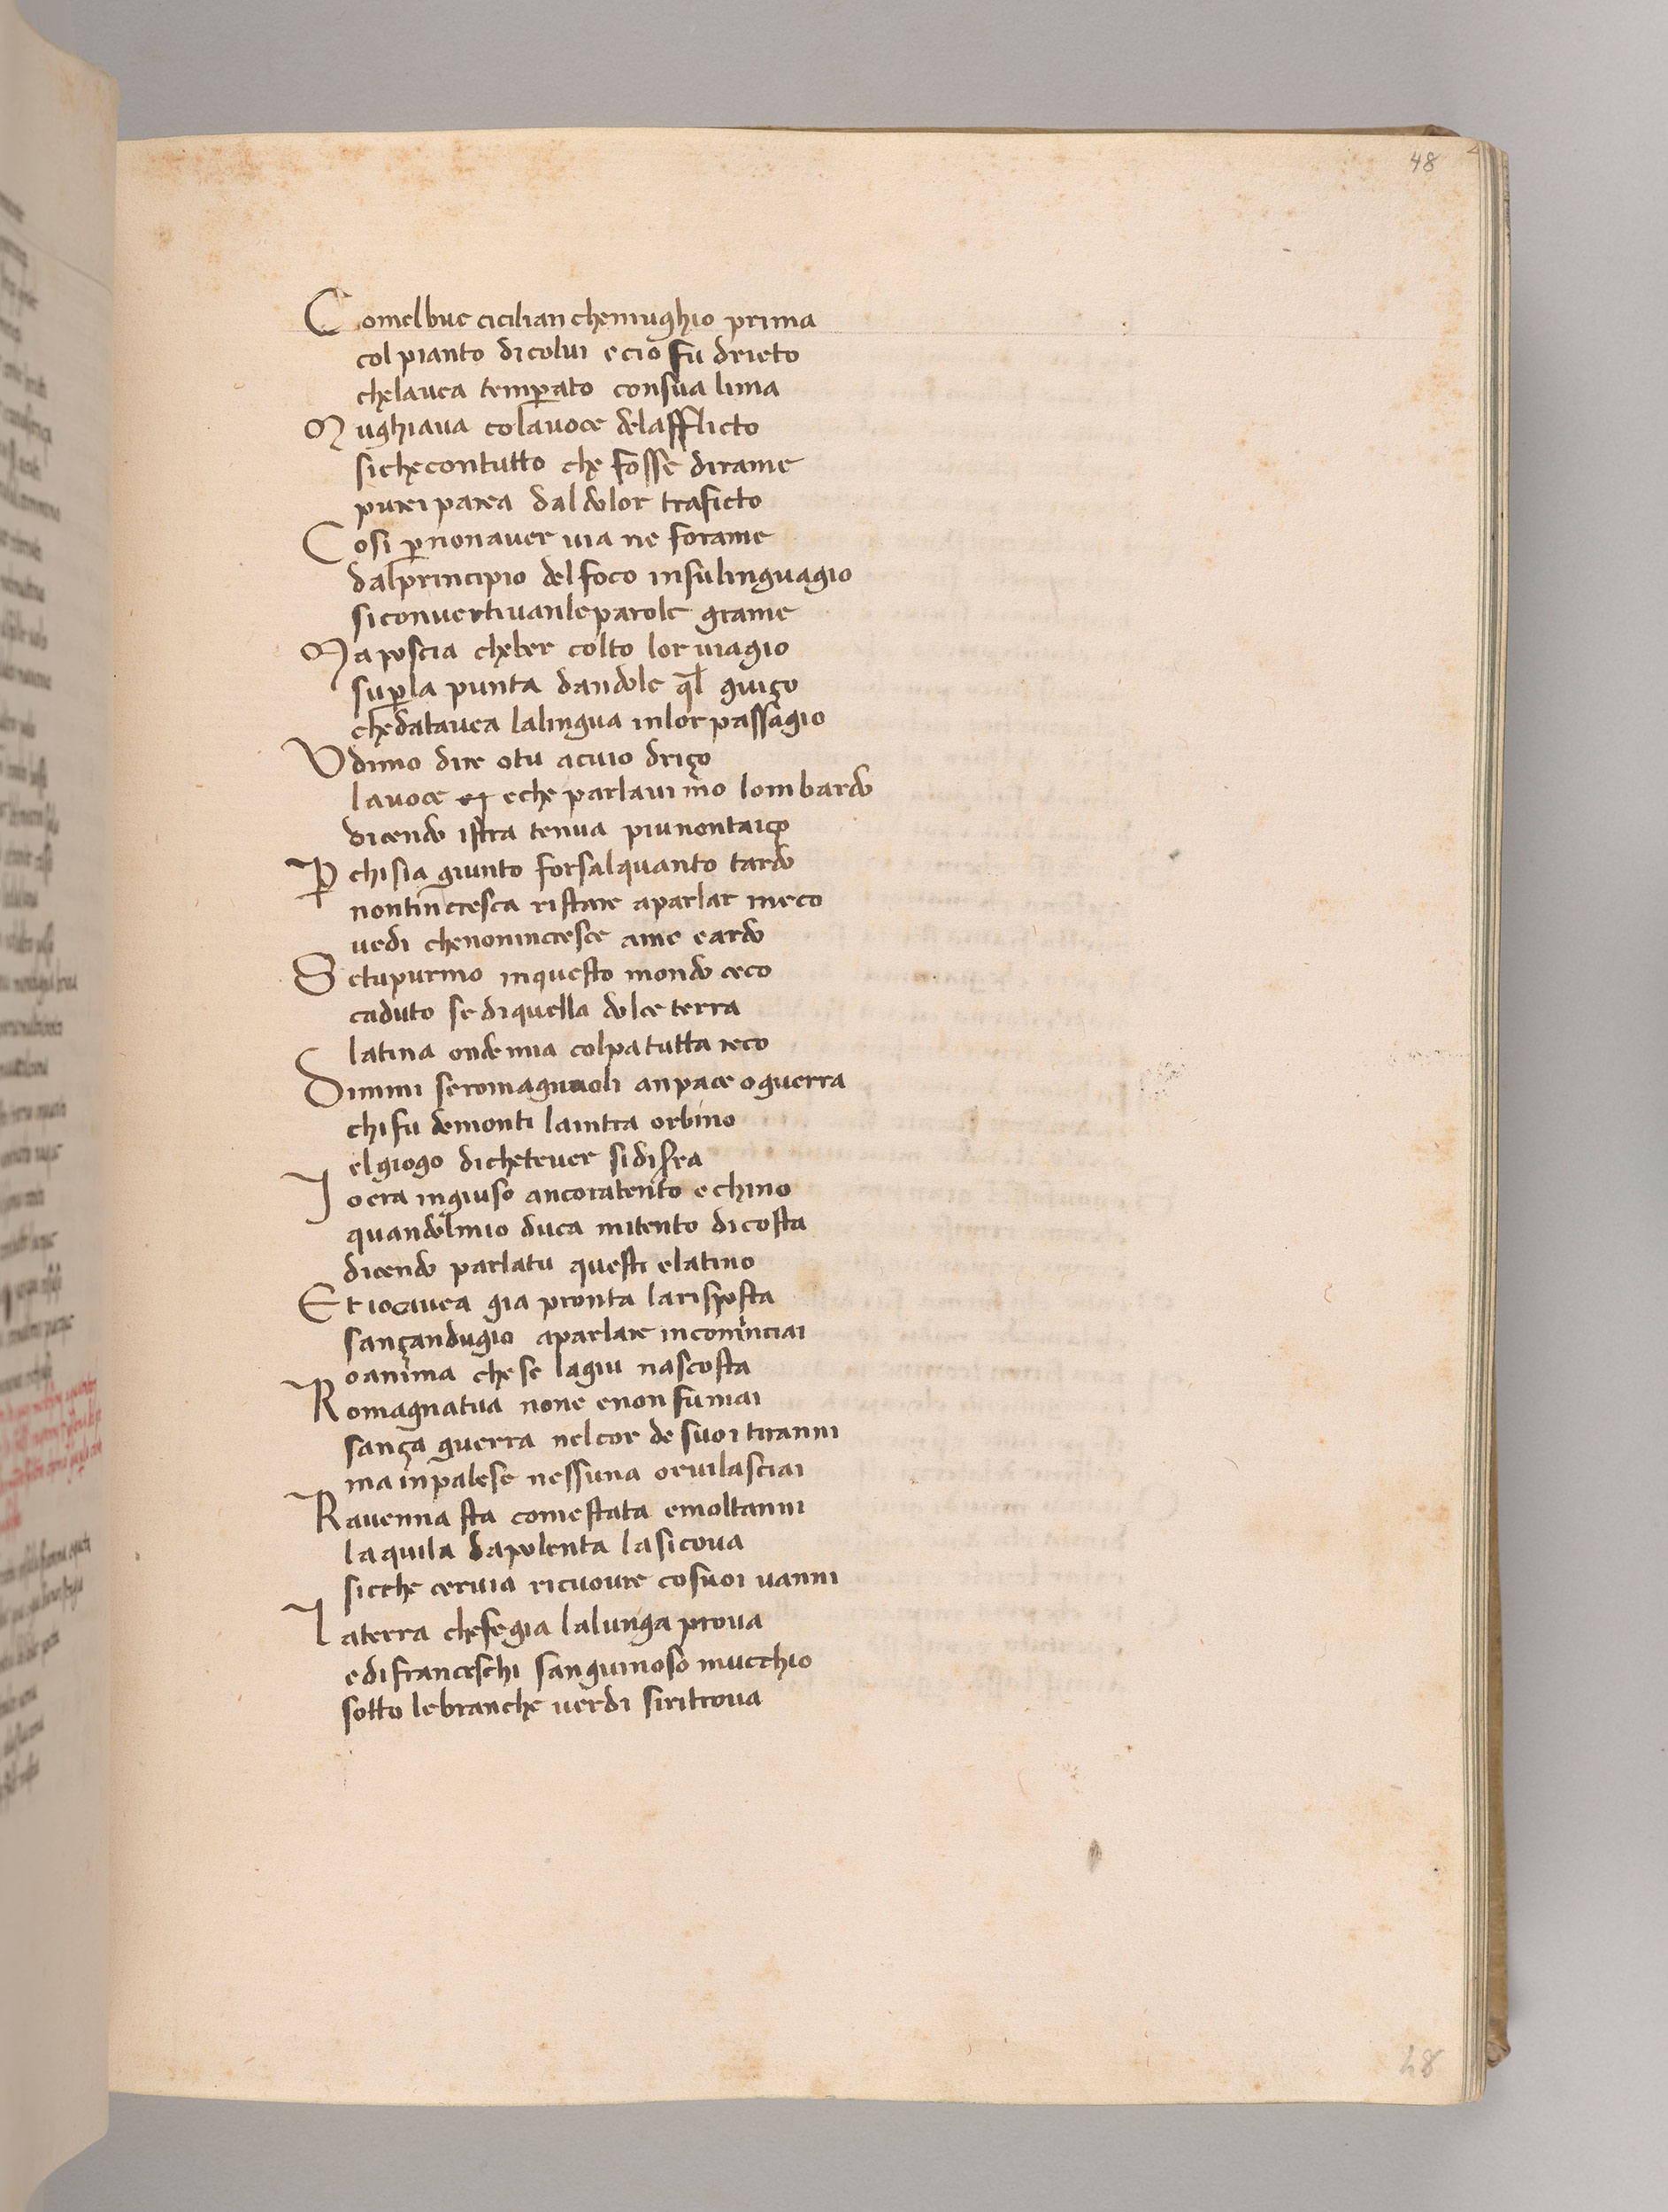 48
Comelbue cicilian chemughio prima
col pianto dicolui ecio fu drieto
chelauea temꝑato consua lima
Mughiaua colauoce delafflicto
sichecontutto che fosse dirame
purei parea daldolor traficto
Cosi ꝑnonauer uia ne forame
dalprincipio delfoco insulinguagio
siconuertiuanleparole grame
Maposcia cheber colto lor uiagio
suꝑla punta dandole ql̄ guiço
chedatauea lalingua inlor passagio
Vdimo dire otu acuio driço
lauoce eche parlaui mo lombardo
dicendo istra tenua piunontaiço
Ꝑchisia giunto forsalquanto tardo
nontincresca ristare aparlar meco
uedi chenonincresce ame eardo
Setupurmo inquesto mondo ceco
caduto se diquella dolce terra
latina ondemia colpatutta reco
Dimmi seromagnuoli anpace oguerra
chifu demonti laintra orbino
elgiogo dicheteuer sidisra
Ioera ingiuso ancoratento echino
quandolmio duca mitento dicosta
dicendo parlatu questi elatino
Et iocauea gia pronta larisposta
sançandugio aparlare incominciai
oanima chese lagiu nascosta
Romagnatua none enon fumai
sança guerra nelcor de suoi tiranni
ma inpalese nessuna oruilasciai
Rauenna sta comestata emoltanni
laquila dapolenta lasicoua
sicche ceruia ricuoure cosuoi uanni
Laterra chefegia lalunga proua
edifranceschi sanguinoso mucchio
sotto lebranche uerdi siritroua
48